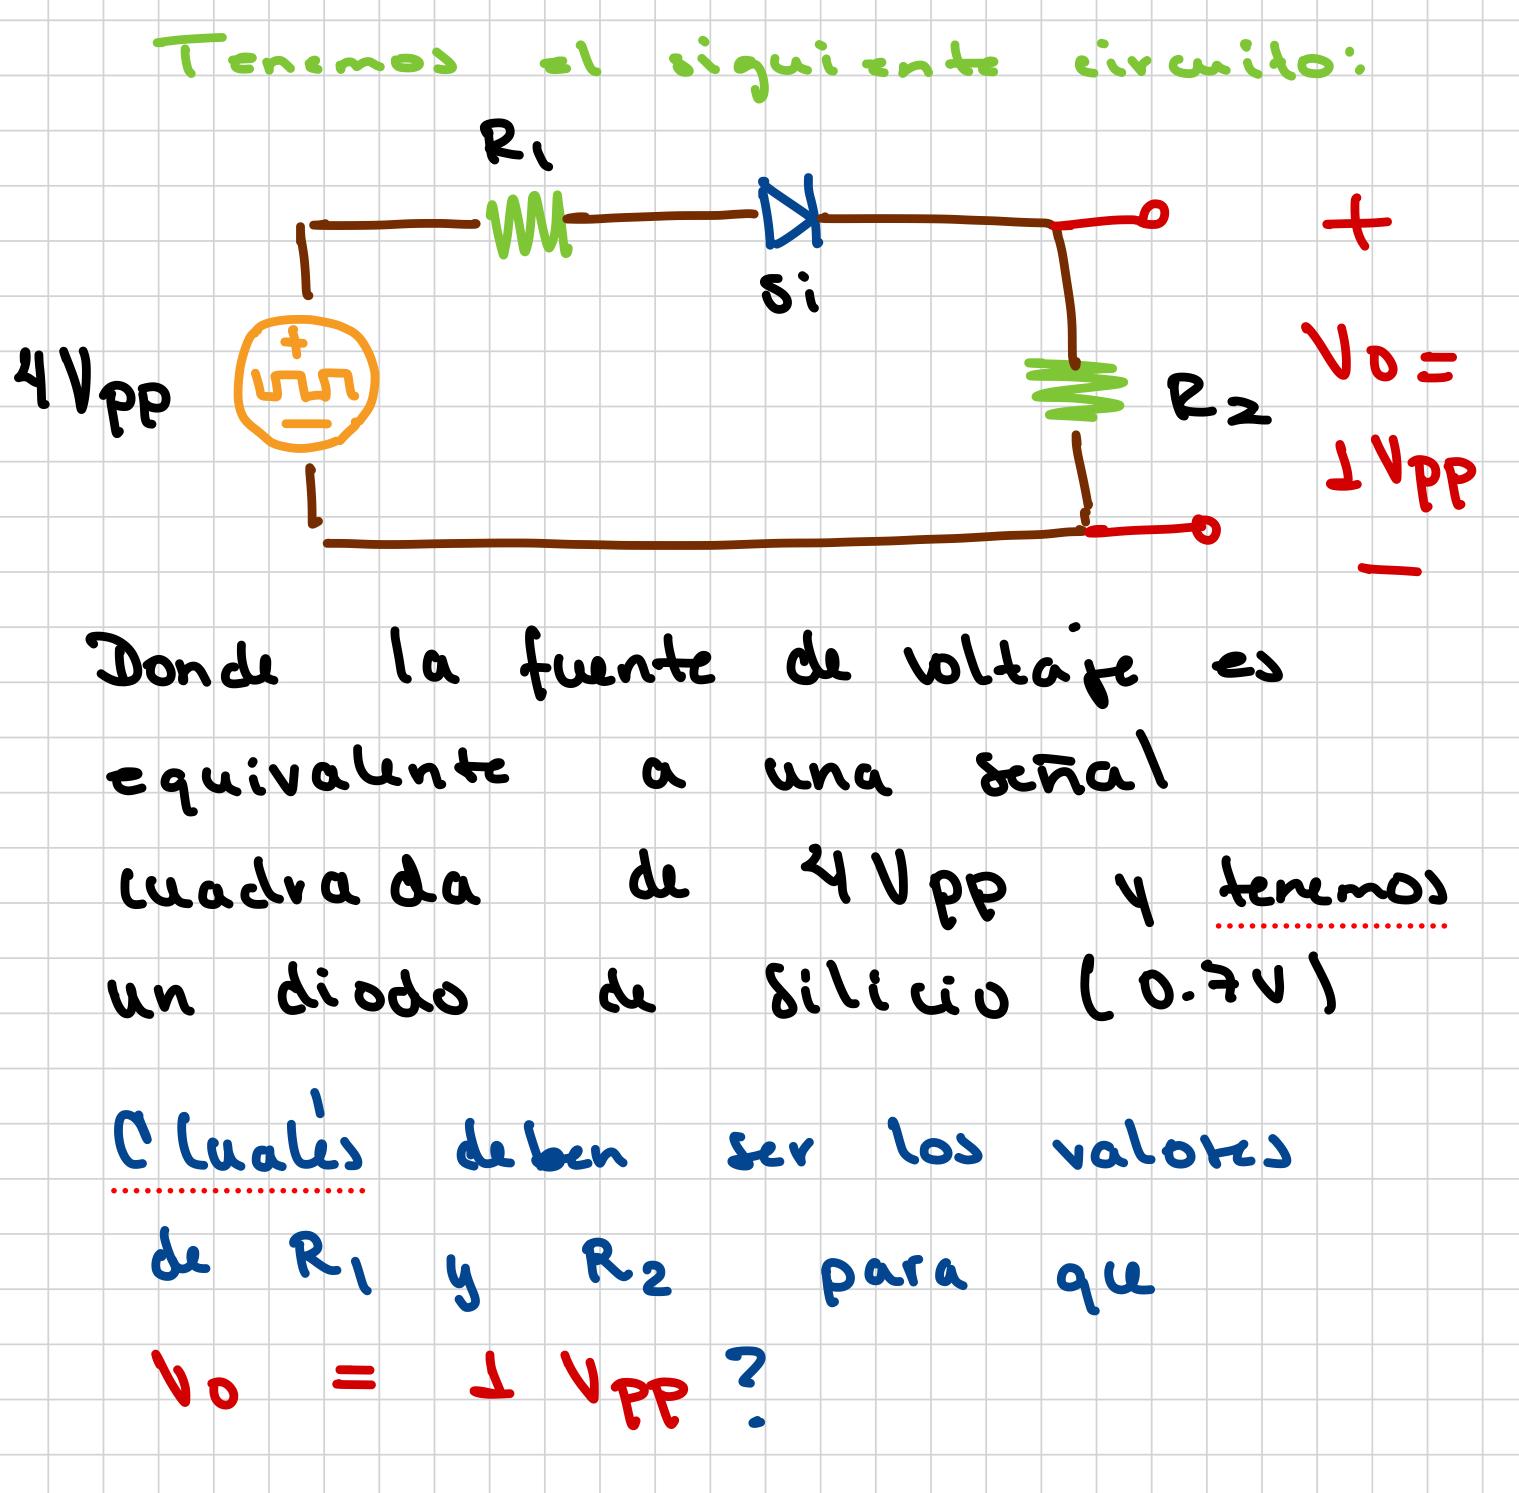 Tenemos el siguiente circuito:
R1
Si
+
4Vpp
+
-
R2
Vo =
1Vpp
-
Donde la fuente de voltaje es
equivalente a una señal
cuadrada de 4Vpp y tenemos
un diodo de silicio (0.7V)
¿Cuáles deben ser los valores
de R1 y R2 para que
Vo = 1 Vpp ?